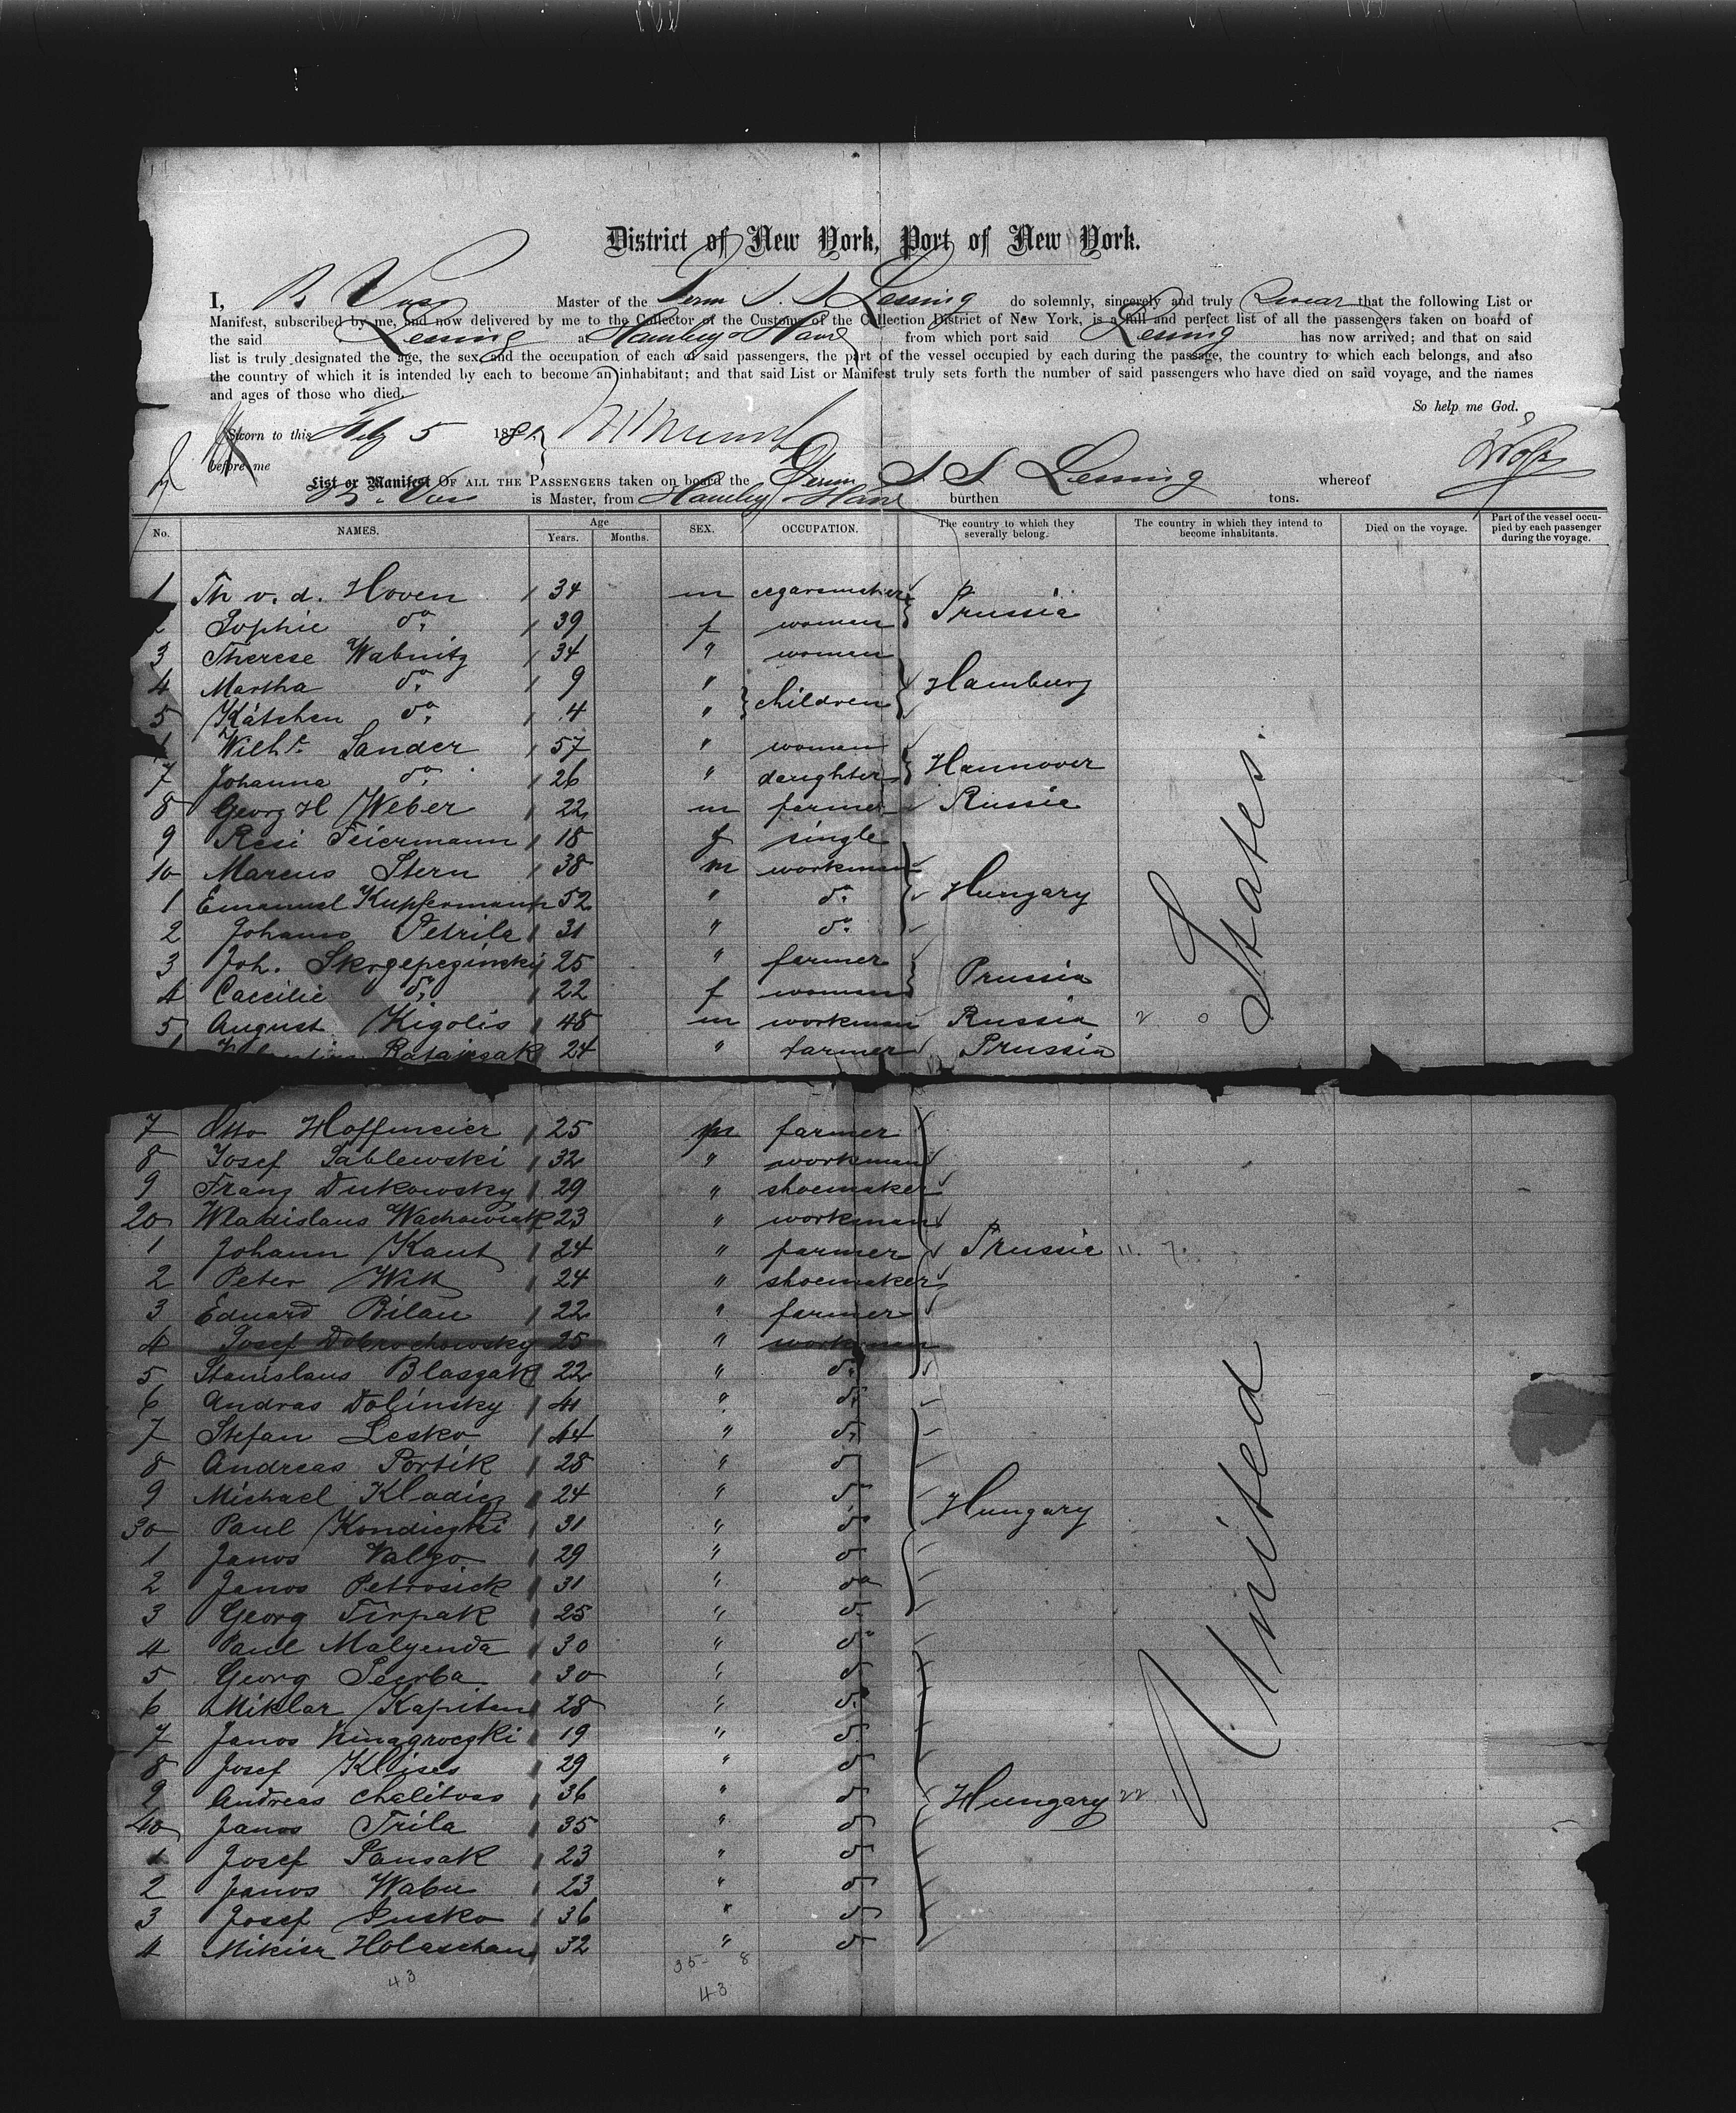 District of New York, Port of New York.
I, B Voss Master of the Germ S. S Lessing do solemnly, sincerely and truly swear that the following List or
Manifest, subscribed by me, and now delivered by me to the Collector of the Customs of the Collection District of New York, is a full and perfect list of all the passengers taken on board of
the said Lessing at Hamburg Havre from which port said Lessing has now arrived; and that on said
list is truly designated the age, the sex and the occupation of each of said passengers, the part of the vessel occupied by each during the passage, the country to which each belongs, and also
the country of which it is intended by each to become an inhabitant; and that said List or Manifest truly sets forth the number of said passengers who have died on said voyage, and the names
and ages of those who died.
So help me God.
Sworn to this Feby 5 188
before me
List or Manifest OF ALL THE PASSENGERS taken on board the Germ S. S. Lessing whereof
B. Voss is Master, from Hamburg Havre burthen tons.
No. NAMES. Age Years. Months. SEX. OCCUPATION. The country to which they severally belong. The country in which they intend to become inhabitants. Died on the voyage. Part of the vessel occupied by each passenger during the voyage.
1 Th v. d. Hoven 34 m cigarmaker Prussia
2 Sophie do 39 f women
3 Therese Wabnitz 34 " women
4 Martha do 9 " children Hamburg
5 Kätchen do 4 "
Wilh. Sander 57 " women
7 Johanna do 26 " daughter Hannover
8 Georg H Weber 22 m farmer Russia
9 Resi Feiermann 18 f single
10 Marcus Stern 38 m workman
1 Emanuel Kupfermann 52 " do Hungary
2 Johann Petrila 31 " do
3 Joh. 25 " farmer Prussia
4 Caecilie do 22 f woman
5 August Kigolis 48 m workman Russia
Ratajczak 24 " farmer Prussia
7 Otto Hoffmeier 25 m farmer
8 Josef Sablewski 32 " workman
9 Franz Dukowsky 29 " shoemaker
20 Wladislaus Wachowiak 23 " workman
1 Johann Kant 24 " farmer Prussia 11. 7.
2 Peter Witt 24 " shoemaker
3 Eduard Bilau 22 " farmer
4 Josef Dobrochowsky 25 " workman
5 Stanislaus Blaszak 22 " do
6 Andras Dolinsky 41 " do
7 Stefan Lesko 44 " do
8 Andreas Portik 28 " do
9 Michael Kladicz 24 " do Hungary
30 Paul Kondiczki 31 " do
1 Janos Valgo 29 " do
2 Janos Petrosick 31 " do
3 Georg Tirpak 25 " do
4 Paul Malyenda 30 " do
5 Georg 30 " do
6 Miklar Kapitan 28 " do
7 Janos 19 " do
8 Josef Klises 29 " do
9 Andreas Chalitoss 36 " do Hungary 22
40 Janos Trila 35 " do
1 Josef Pansak 23 " do
2 Janos Wabu 23 " do
3 Josef Pusko 36 " do
4 Mikisa Holaschan 32 " do
43 35 8
43
United States.